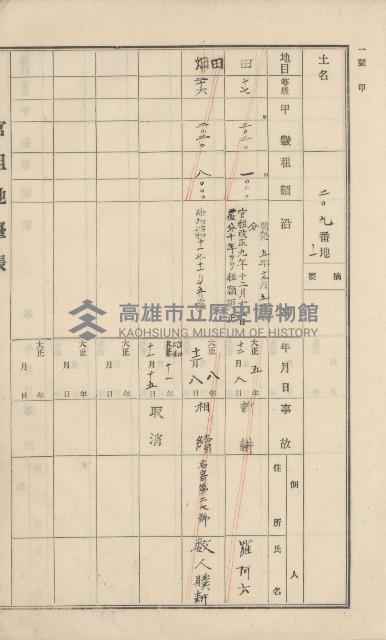 一號 甲
土名
二〇九番地
摘要
地目
等級
甲數
租額
沿
年月日
事故
住所
氏名
個人
田
十七
二〇二〇
一〇〇〇
官租改正九年十二月
大正五年
十二月八日
羅阿六
田
畑
二〇二〇
八〇〇〇
昭和十一年十二月十五日
大正八年
十二月八日
相續
名寄第二七號
數人贌耕
昭和
大正十一年
十一月十五日
取消
大正 年
月 日
大正 年
月 日
大正 年
月 日
官租地臺帳
高雄市立歷史博物館
KAOHSIUNG MUSEUM OF HISTORY